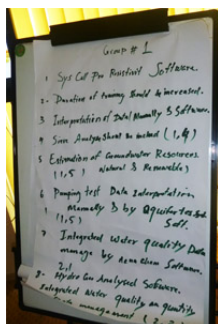 Group # 1
1 Sys Cal Pro Resistivit Software.
2- Duration of training should be increased.
3 Interpretation of Data Manually & Software.
4 Sum Analysis Should be included (1,4)
5 Estimation of Groundwater Resources
(1,5) Natural & Renewable)
6 Pumping test Data Interpretation
Manually & by Aquifertest
(1,5) Soft.
7 Integrated water quality Data
manage by Software.
8- Hydro Geo Analysed Software.
Integrated Water quality an quantity
Data management